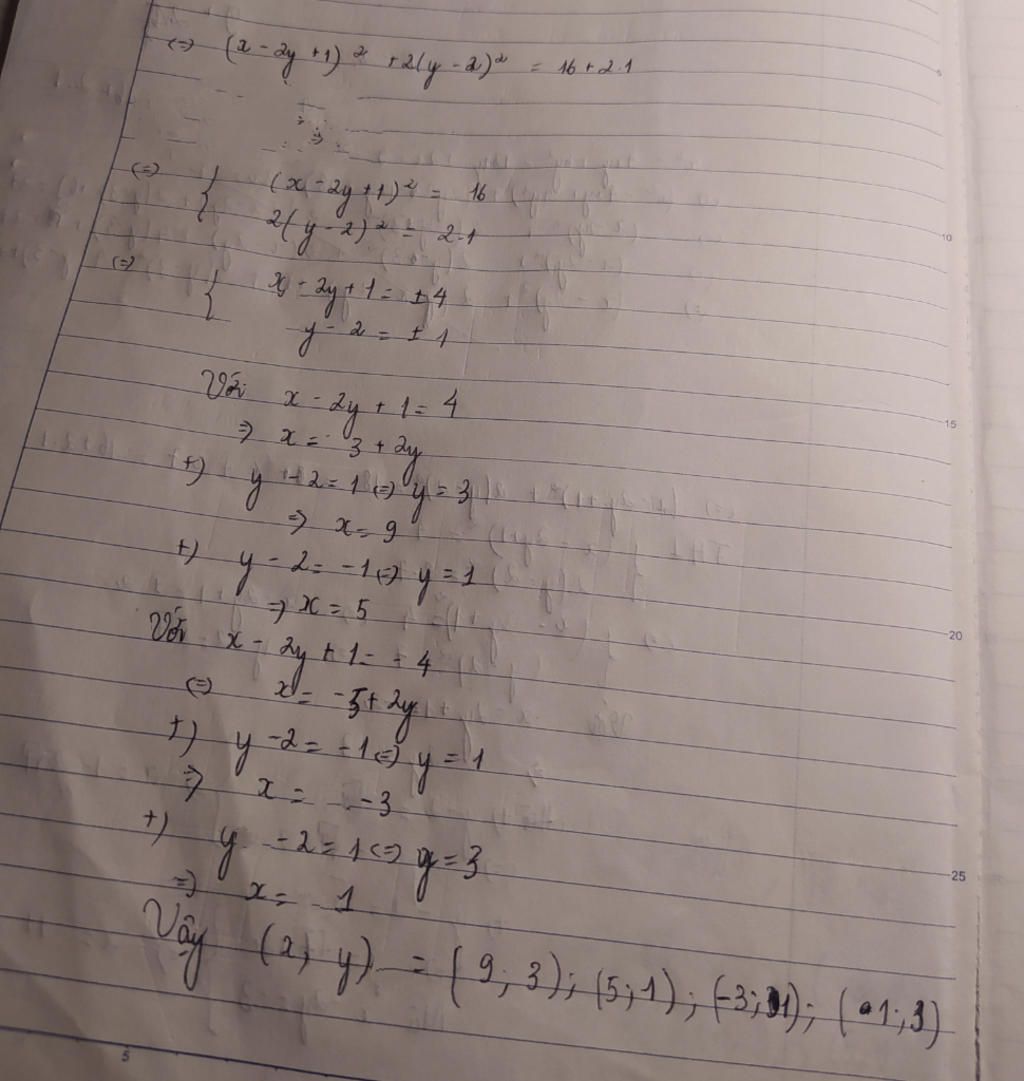 (=) (x - 2y + 1)² + 2(y - 2)² = 16 + 2.1
(=) { (x - 2y + 1)² = 16
2(y - 2)² = 2.1
(=) { x - 2y + 1 = ± 4
y - 2 = ± 1
Với x - 2y + 1 = 4
⇒ x = 3 + 2y
+) y - 2 = 1 (=) y = 3
⇒ x = 9
+) y - 2 = -1 (=) y = 1
⇒ x = 5
Với x - 2y + 1 = - 4
(=) x = -5 + 2y
+) y - 2 = -1 (=) y = 1
⇒ x = -3
+) y - 2 = 1 (=) y = 3
⇒ x = 1
Vậy (x, y) = (9; 3); (5; 1); (-3; 1); (1; 3)
5
10
15
20
25
5